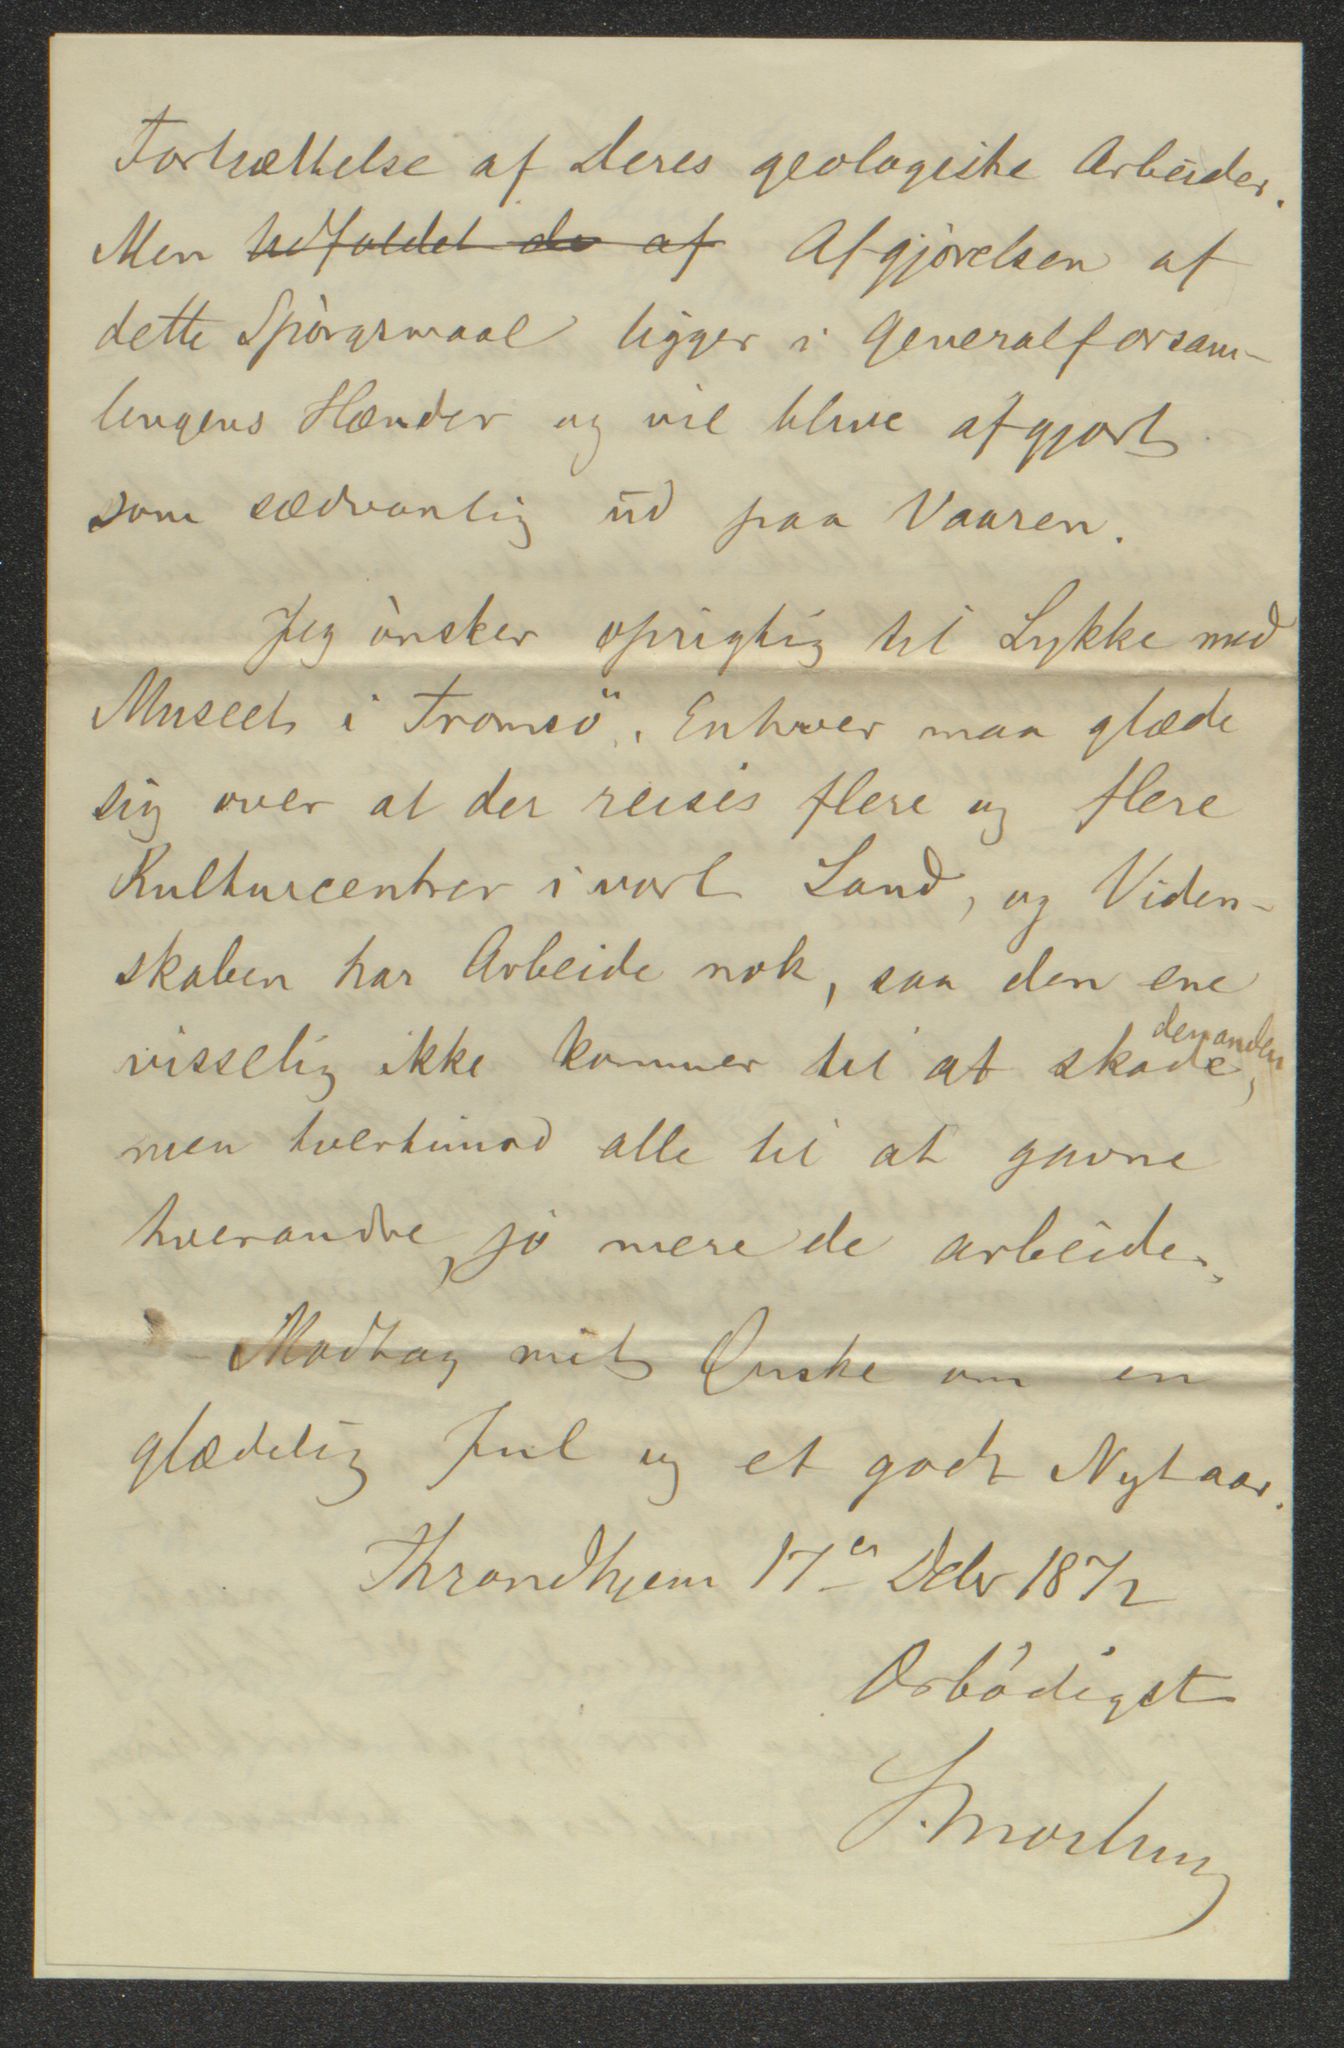 Fortsættelse af Deres geologiske Arbeider.
Men udfaldet de af Afgjørelsen af
dette Spørgsmaal ligger i Generalforsam-
lingens Hænder og vil blive afgjort
som sædvanlig ud paa Vaaren.
Jeg ønsker oprigtig til Lykke med
Museet i Tromsö. Enhver maa glæde
sig over at der reises flere og flere
Kulturcentrer i vort Land, og Viden-
skaben har Arbeide nok, saa den ene
visselig ikke kommer til at skade den anden,
men tvertimod alle til at gavne
hverandre, jo mere de arbeide.
Modtag mit Ønske om en
glædelig Jul og et godt Nytaar.
Throndhjem 17er Dcbr 1872
Ærbødigst